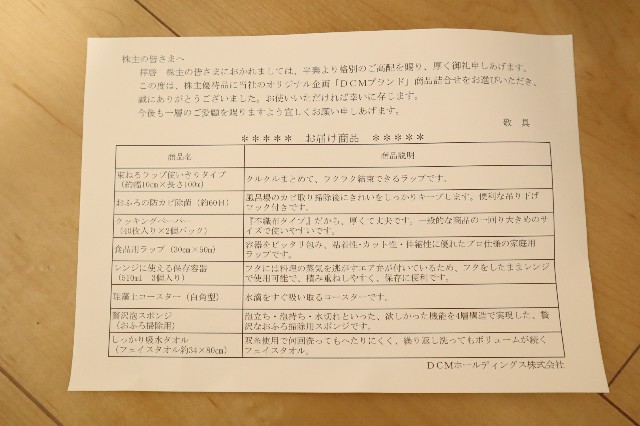 株主の皆さまへ
拝啓　株主の皆さまにおかれましては、平素より格別のご高配を賜り、厚く御礼申しあげます。
この度は、株主優待品に当社のオリジナル企画「DCMブランド」商品詰合せをお選びいただき、
誠にありがとうございました。お使いいただければ幸いに存じます。
今後も一層のご愛顧を賜りますよう宜しくお願い申しあげます。
敬具
＊＊＊＊＊　お届け商品　＊＊＊＊＊
商品名　商品説明
束ねるラップ使いきりタイプ
（約幅10cm×長さ100m）
クルクルまとめて、ラクラク結束できるラップです。
おふろの防カビ除菌（約60日）
風呂場のカビ取り掃除後にきれいをしっかりキープします。便利な吊り下げ
フック付きです。
クッキングペーパー
（40枚入り×2個パック）
『不織布タイプ』だから、厚くて丈夫です。一般的な商品の一回り大きめのサ
イズで使いやすいです。
食品用ラップ（30cm×50m）
容器をピッタリ包み、粘着性・カット性・伸縮性に優れたプロ仕様の家庭用
ラップです。
レンジに使える保存容器
（510ml　3個入り）
フタには料理の蒸気を逃がすエア弁が付いているため、フタをしたままレンジ
で使用可能で、積み重ねしやすく、保存に便利です。
珪藻土コースター（白角型）
水滴をすぐ吸い取るコースターです。
贅沢泡スポンジ
（おふろ掃除用）
泡立ち・泡持ち・水切れといった、欲しかった機能を4層構造で実現した、贅
沢なおふろ掃除用スポンジです。
しっかり吸水タオル
（フェイスタオル約34×80cm）
双糸使用で何回洗ってもへたりにくく、繰り返し洗ってもボリュームが続く
フェイスタオル。
DCMホールディングス株式会社